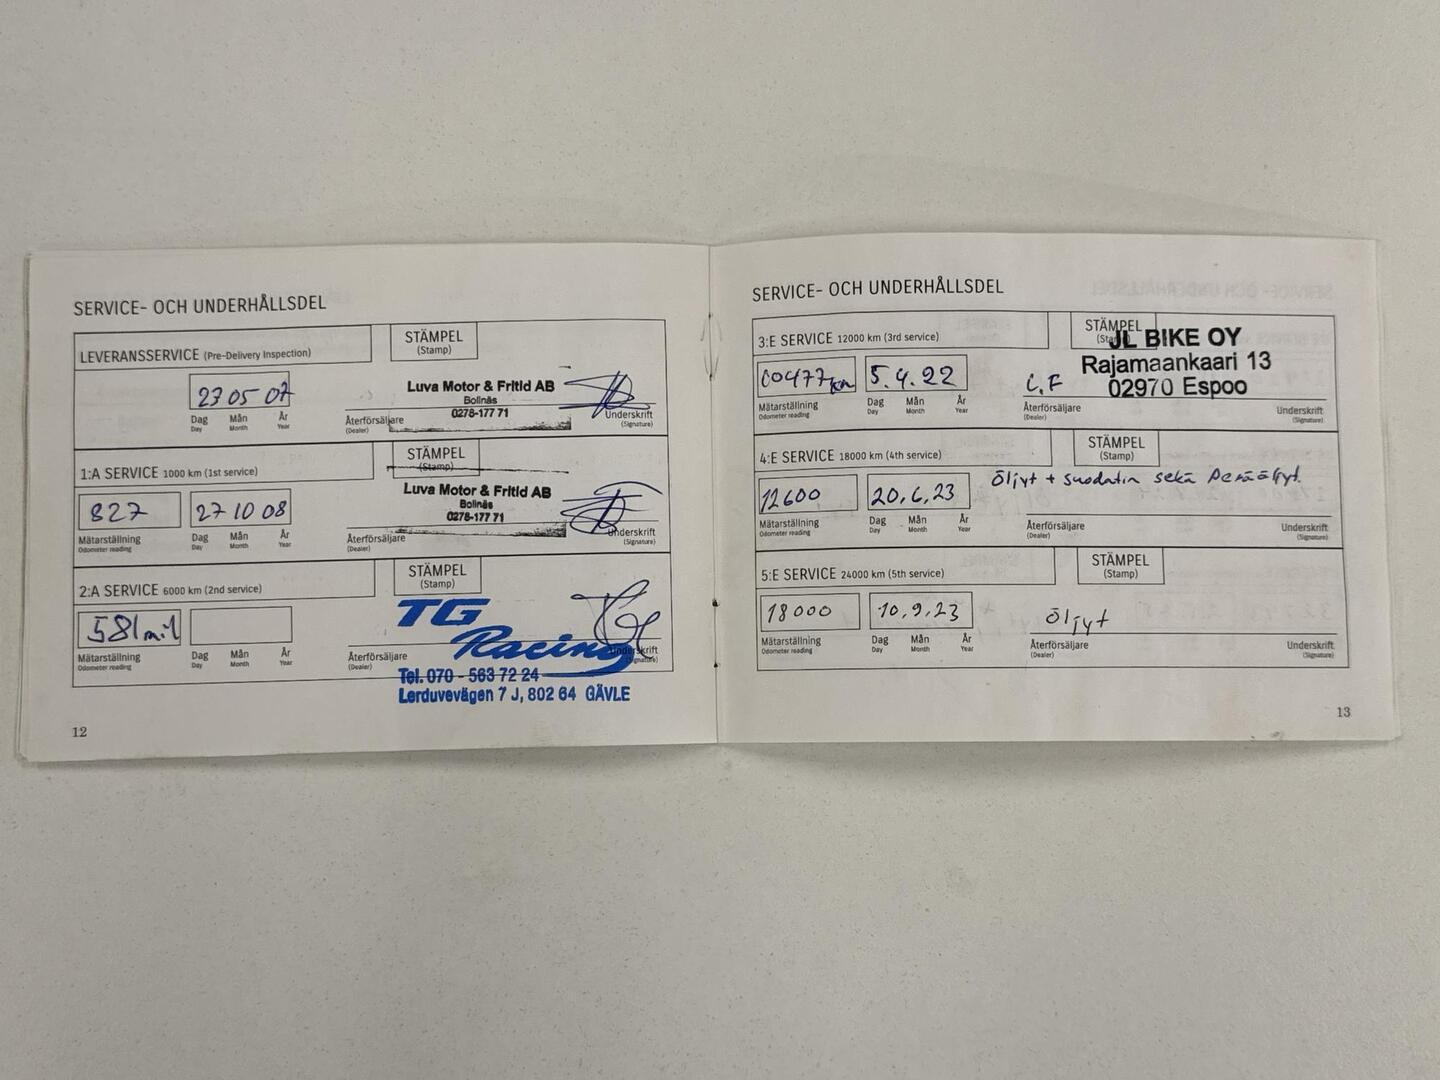 SERVICE- OCH UNDERHÅLLSDEL
LEVERANSSERVICE (Pre-Delivery Inspection)
STÄMPEL
(Stamp)
27 05 07
Dag Mån År
Day Month Year
Luva Motor & Fritid AB
Bollnäs
0278-177 71
Återförsäljare
(Dealer)
Underskrift
(Signature)
1:A SERVICE 1000 km (1st service)
STÄMPEL
(Stamp)
827
27 10 08
Mätarställning
Odometer reading
Dag Mån År
Day Month Year
Luva Motor & Fritid AB
Bollnäs
0278-177 71
Återförsäljare
(Dealer)
Underskrift
(Signature)
2:A SERVICE 6000 km (2nd service)
STÄMPEL
(Stamp)
581 mil
Mätarställning
Odometer reading
Dag Mån År
Day Month Year
TG
Racing
Återförsäljare
(Dealer)
Underskrift
(Signature)
Tel. 070 - 563 72 24
Lerduvevägen 7 J, 802 64 GÄVLE
12
SERVICE- OCH UNDERHÅLLSDEL
3:E SERVICE 12000 km (3rd service)
STÄMPEL
(Stamp)
JL BIKE OY
Rajamaankaari 13
02970 Espoo
5.4.22
Mätarställning
Odometer reading
Dag Mån År
Day Month Year
Återförsäljare
(Dealer)
Underskrift
(Signature)
4:E SERVICE 18000 km (4th service)
STÄMPEL
(Stamp)
12600
20.6.23
Öljyt + suodatin sekä Peräöljyt.
Mätarställning
Odometer reading
Dag Mån År
Day Month Year
Återförsäljare
(Dealer)
Underskrift
(Signature)
5:E SERVICE 24000 km (5th service)
STÄMPEL
(Stamp)
18000
10.9.23
Öljyt
Mätarställning
Odometer reading
Dag Mån År
Day Month Year
Återförsäljare
(Dealer)
Underskrift
(Signature)
13